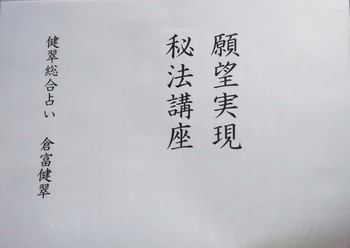 願望実現
秘法講座
健翠総合占い　倉富健翠